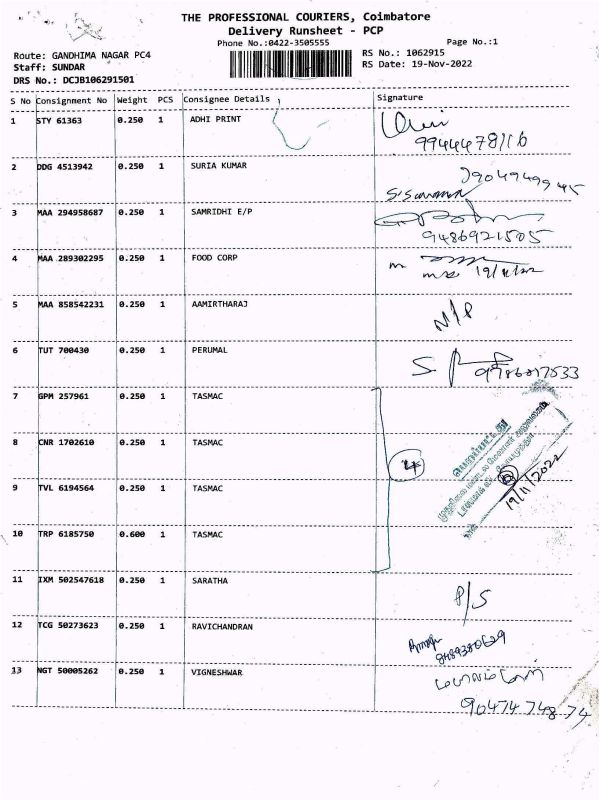 THE PROFESSIONAL COURIERS, Coimbatore
Delivery Runsheet - PCP
Phone No.:0422-3505555
Page No.:1
Route: GANDHIMA NAGAR PC4
RS No.: 1062915
Staff: SUNDAR
RS Date: 19-Nov-2022
DRS No.: DCJB106291501
S No Consignment No Weight PCS Consignee Details Signature
1 STY 61363 0.250 1 ADHI PRINT
9944478116
2 DDG 4513942 0.250 1 SURIA KUMAR
3 MAA 294958687 0.250 1 SAMRIDHI E/P
9486921505
4 MAA 289302295 0.250 1 FOOD CORP
19/11/22
5 MAA 858542231 0.250 1 AAMIRTHARAJ
N/P
6 TUT 700430 0.250 1 PERUMAL
7 GPM 257961 0.250 1 TASMAC
8 CNR 1702610 0.250 1 TASMAC
4
பெறப்பட்டது
19/11/2022
9 TVL 6194564 0.250 1 TASMAC
10 TRP 6185750 0.600 1 TASMAC
11 IXM 502547618 0.250 1 SARATHA
P/S
12 TCG 50273623 0.250 1 RAVICHANDRAN
8489380629
13 NGT 50005262 0.250 1 VIGNESHWAR
90474 748 74